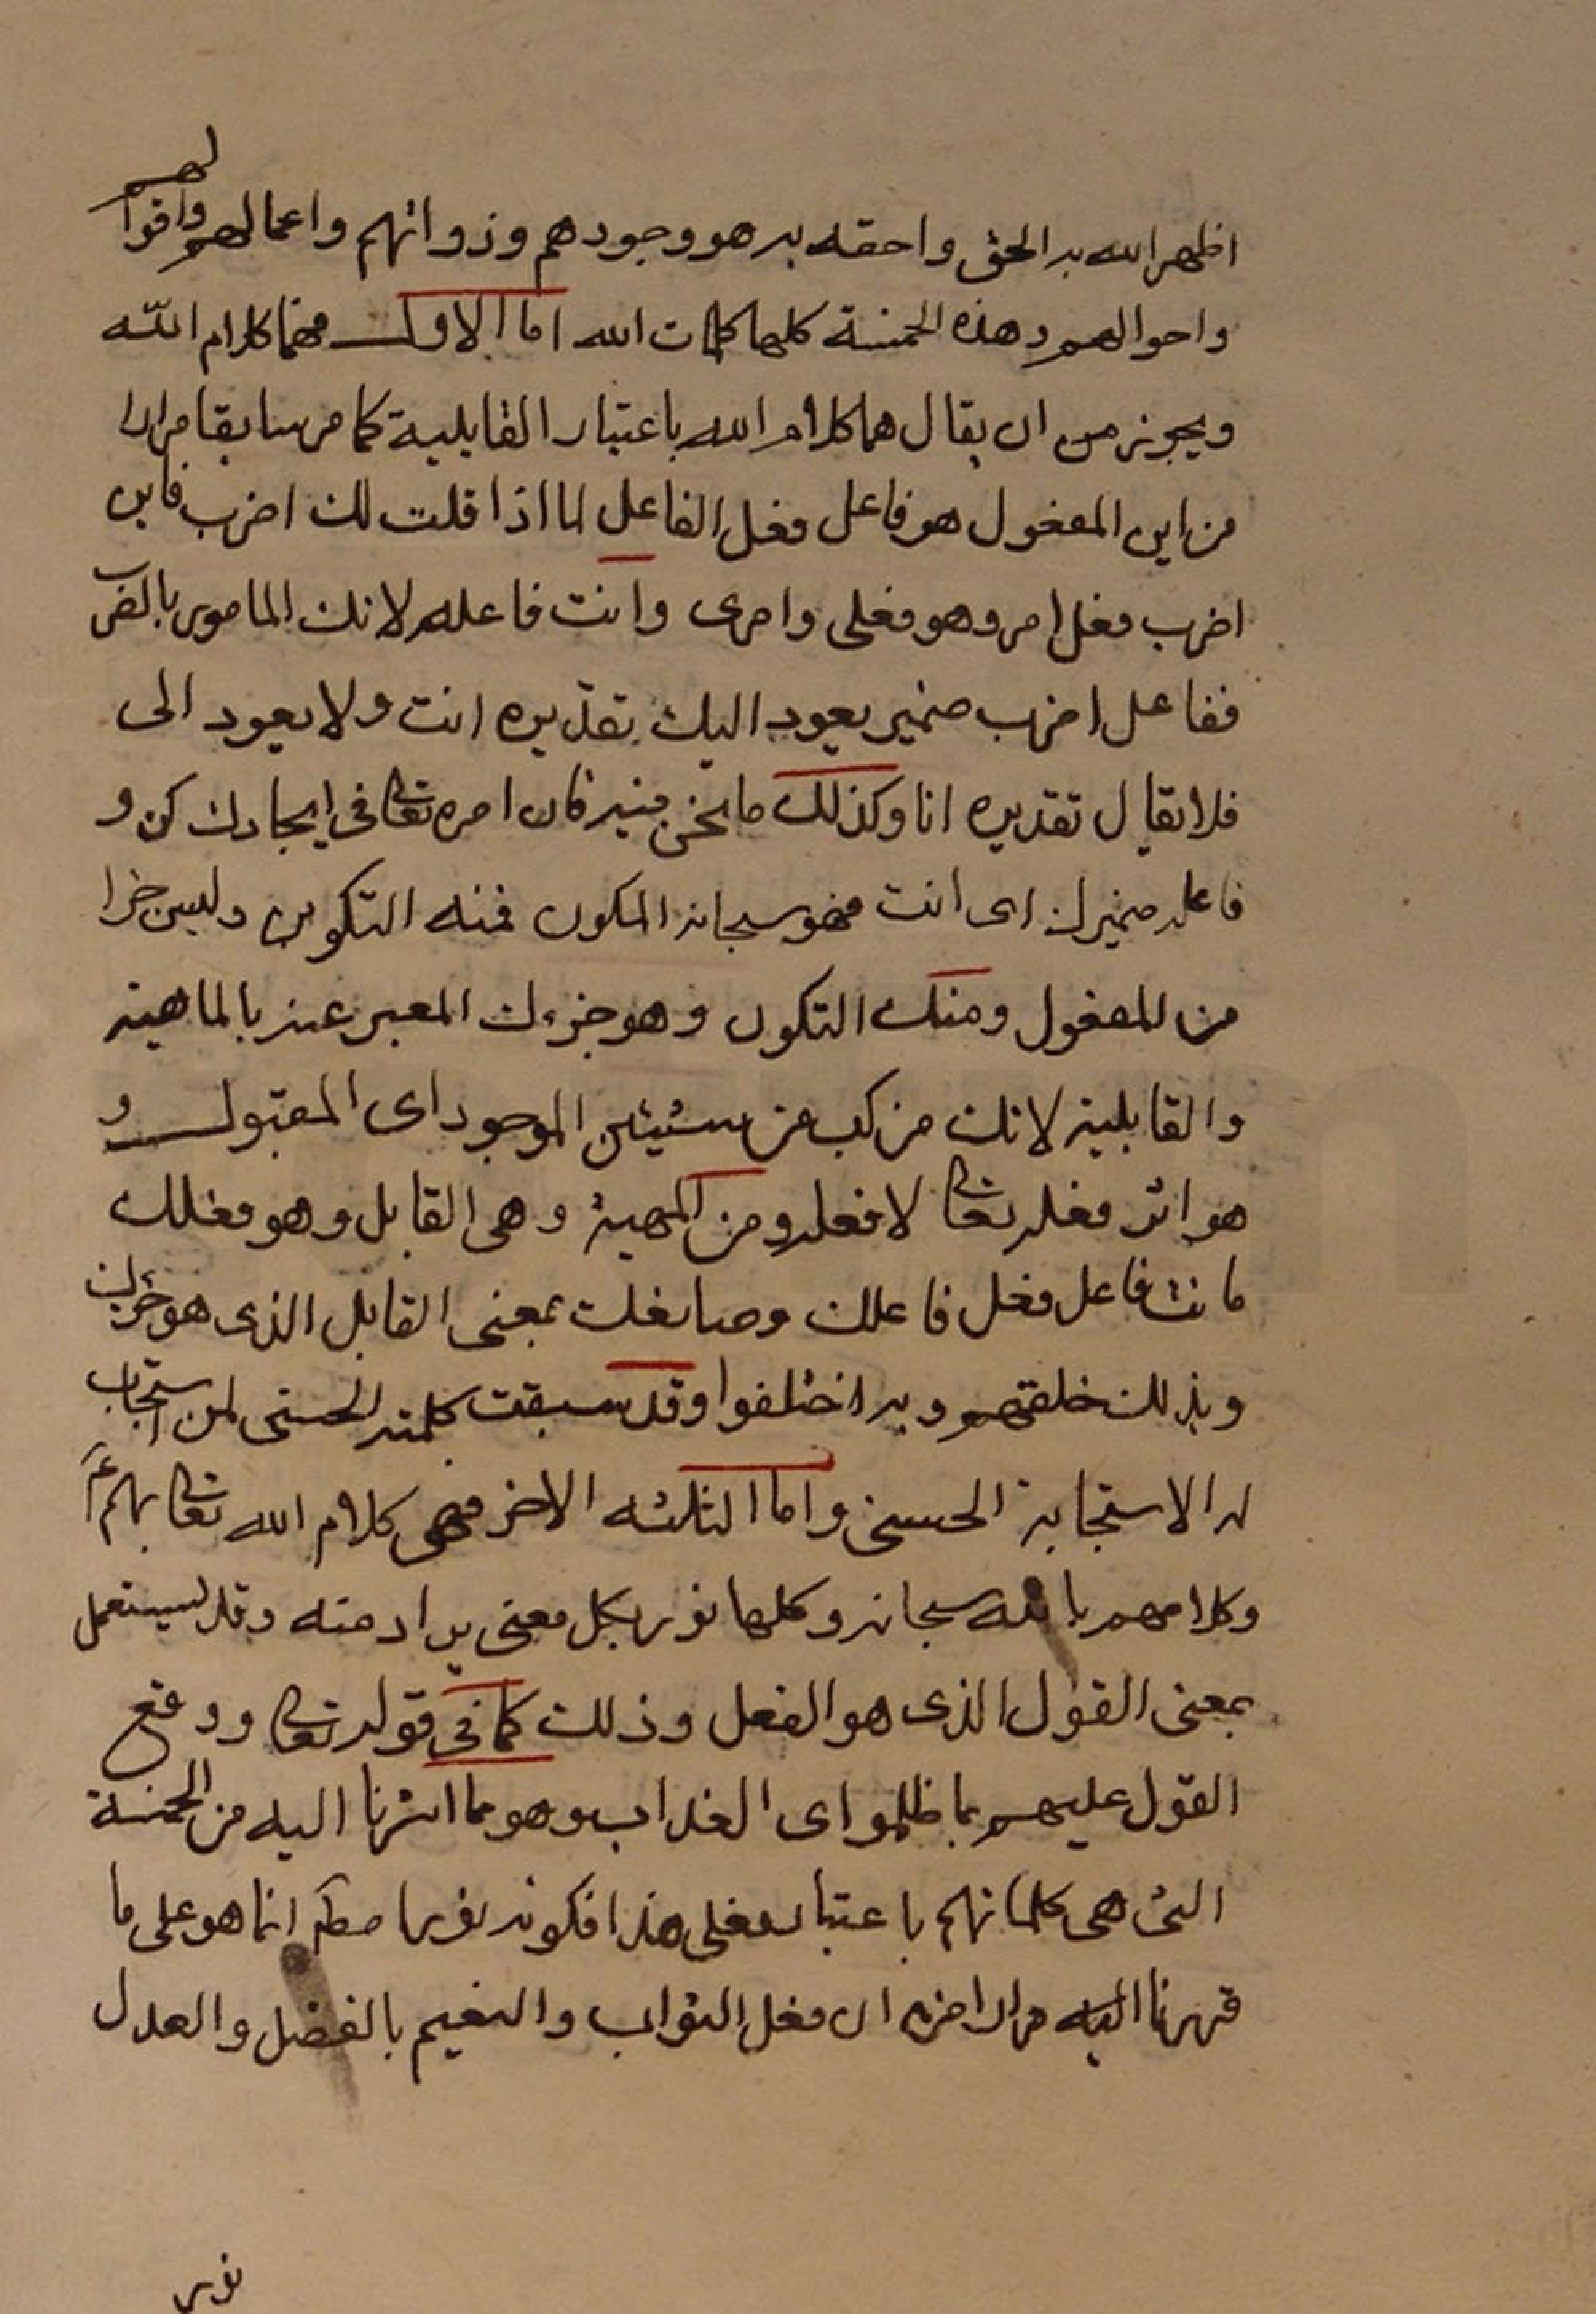 اظهر الله به الحق واحقه به هو وجودهم وذواتهم واعمالهم واقوالهم
واحوالهم وهذه الخمسة كلها كلمات الله اما الاول فهما كلام الله
ويجوز من ان يقال هما كلام الله باعتبار القابلية كما مر سابقا مرارا
من اين المفعول هو فاعل فعل الفاعل لما اذا قلت لك اضرب فاين
اضرب فعل امر وهو فعلى وامرى وانت فاعله لانك المامور بالضرب
ففاعل اضرب ضمير يعود اليك تقديره انت ولا يعود الى
فلا يقال تقديره انا وكذلك ما نحن فيه فان امره تعالى فى ايجادك كن و
فاعله ضميرك اى انت فهو سبحانه المكون فمنه التكوين وليس جزا
من المفعول ومنك التكون وهو جزءك المعبر عنه بالماهية
والقابلية لانك مركب من شيئين الموجود اى المقبول و
هو اثر فعله تعالى لا فعله ومن المهية وهى القابل وهو فعلك
فانت فاعل فعل فاعلك وصانعك بمعنى القابل الذى هو جزءك
وبذلك خلقتهم وبه اختلفوا وقد سبقت كلمته الحسنى لمن استجاب
له الاستجابة الحسنى واما الثلثه الاخر فهى كلام الله تعالى بهم ع
وكلامهم بالله سبحانه وكلها نور بكل معنى يراد منه وقد يستعمل
بمعنى القول الذى هو الفعل وذلك كما فى قوله تعالى ووقع
القول عليهم بما ظلموا اى العذاب وهو مما اشرنا اليه من الخمسة
التى هى كلماتهم باعتبار فعلى هذا فكونه نورا صكم انما هو على ما
قررنا اليه مرارا من ان فعل الثواب والنعيم بالفضل والعدل
نور